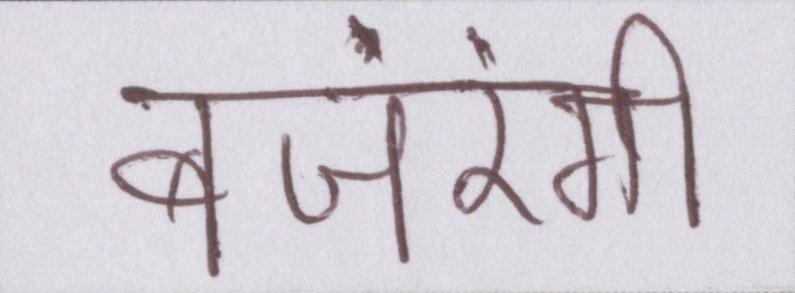 बजंरंगी